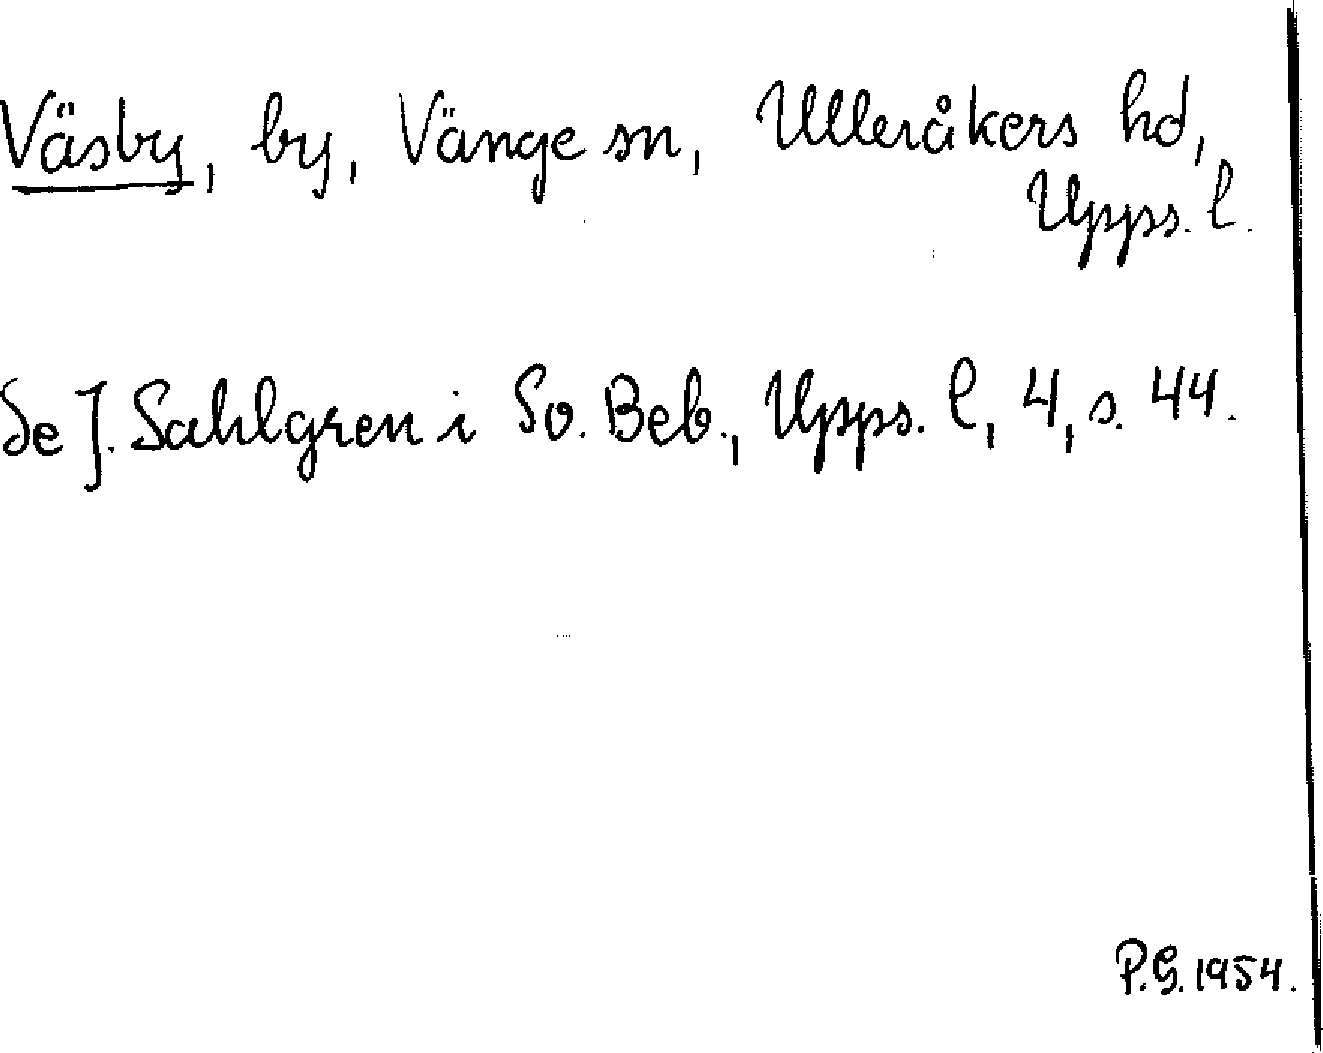 Väsby, by, Vänge sn, Ulleråkers hd,
Upps. l.
Se J. Sahlgren i Sv. Beb., Upps. l, 4, s. 44.
P.G. 1954.